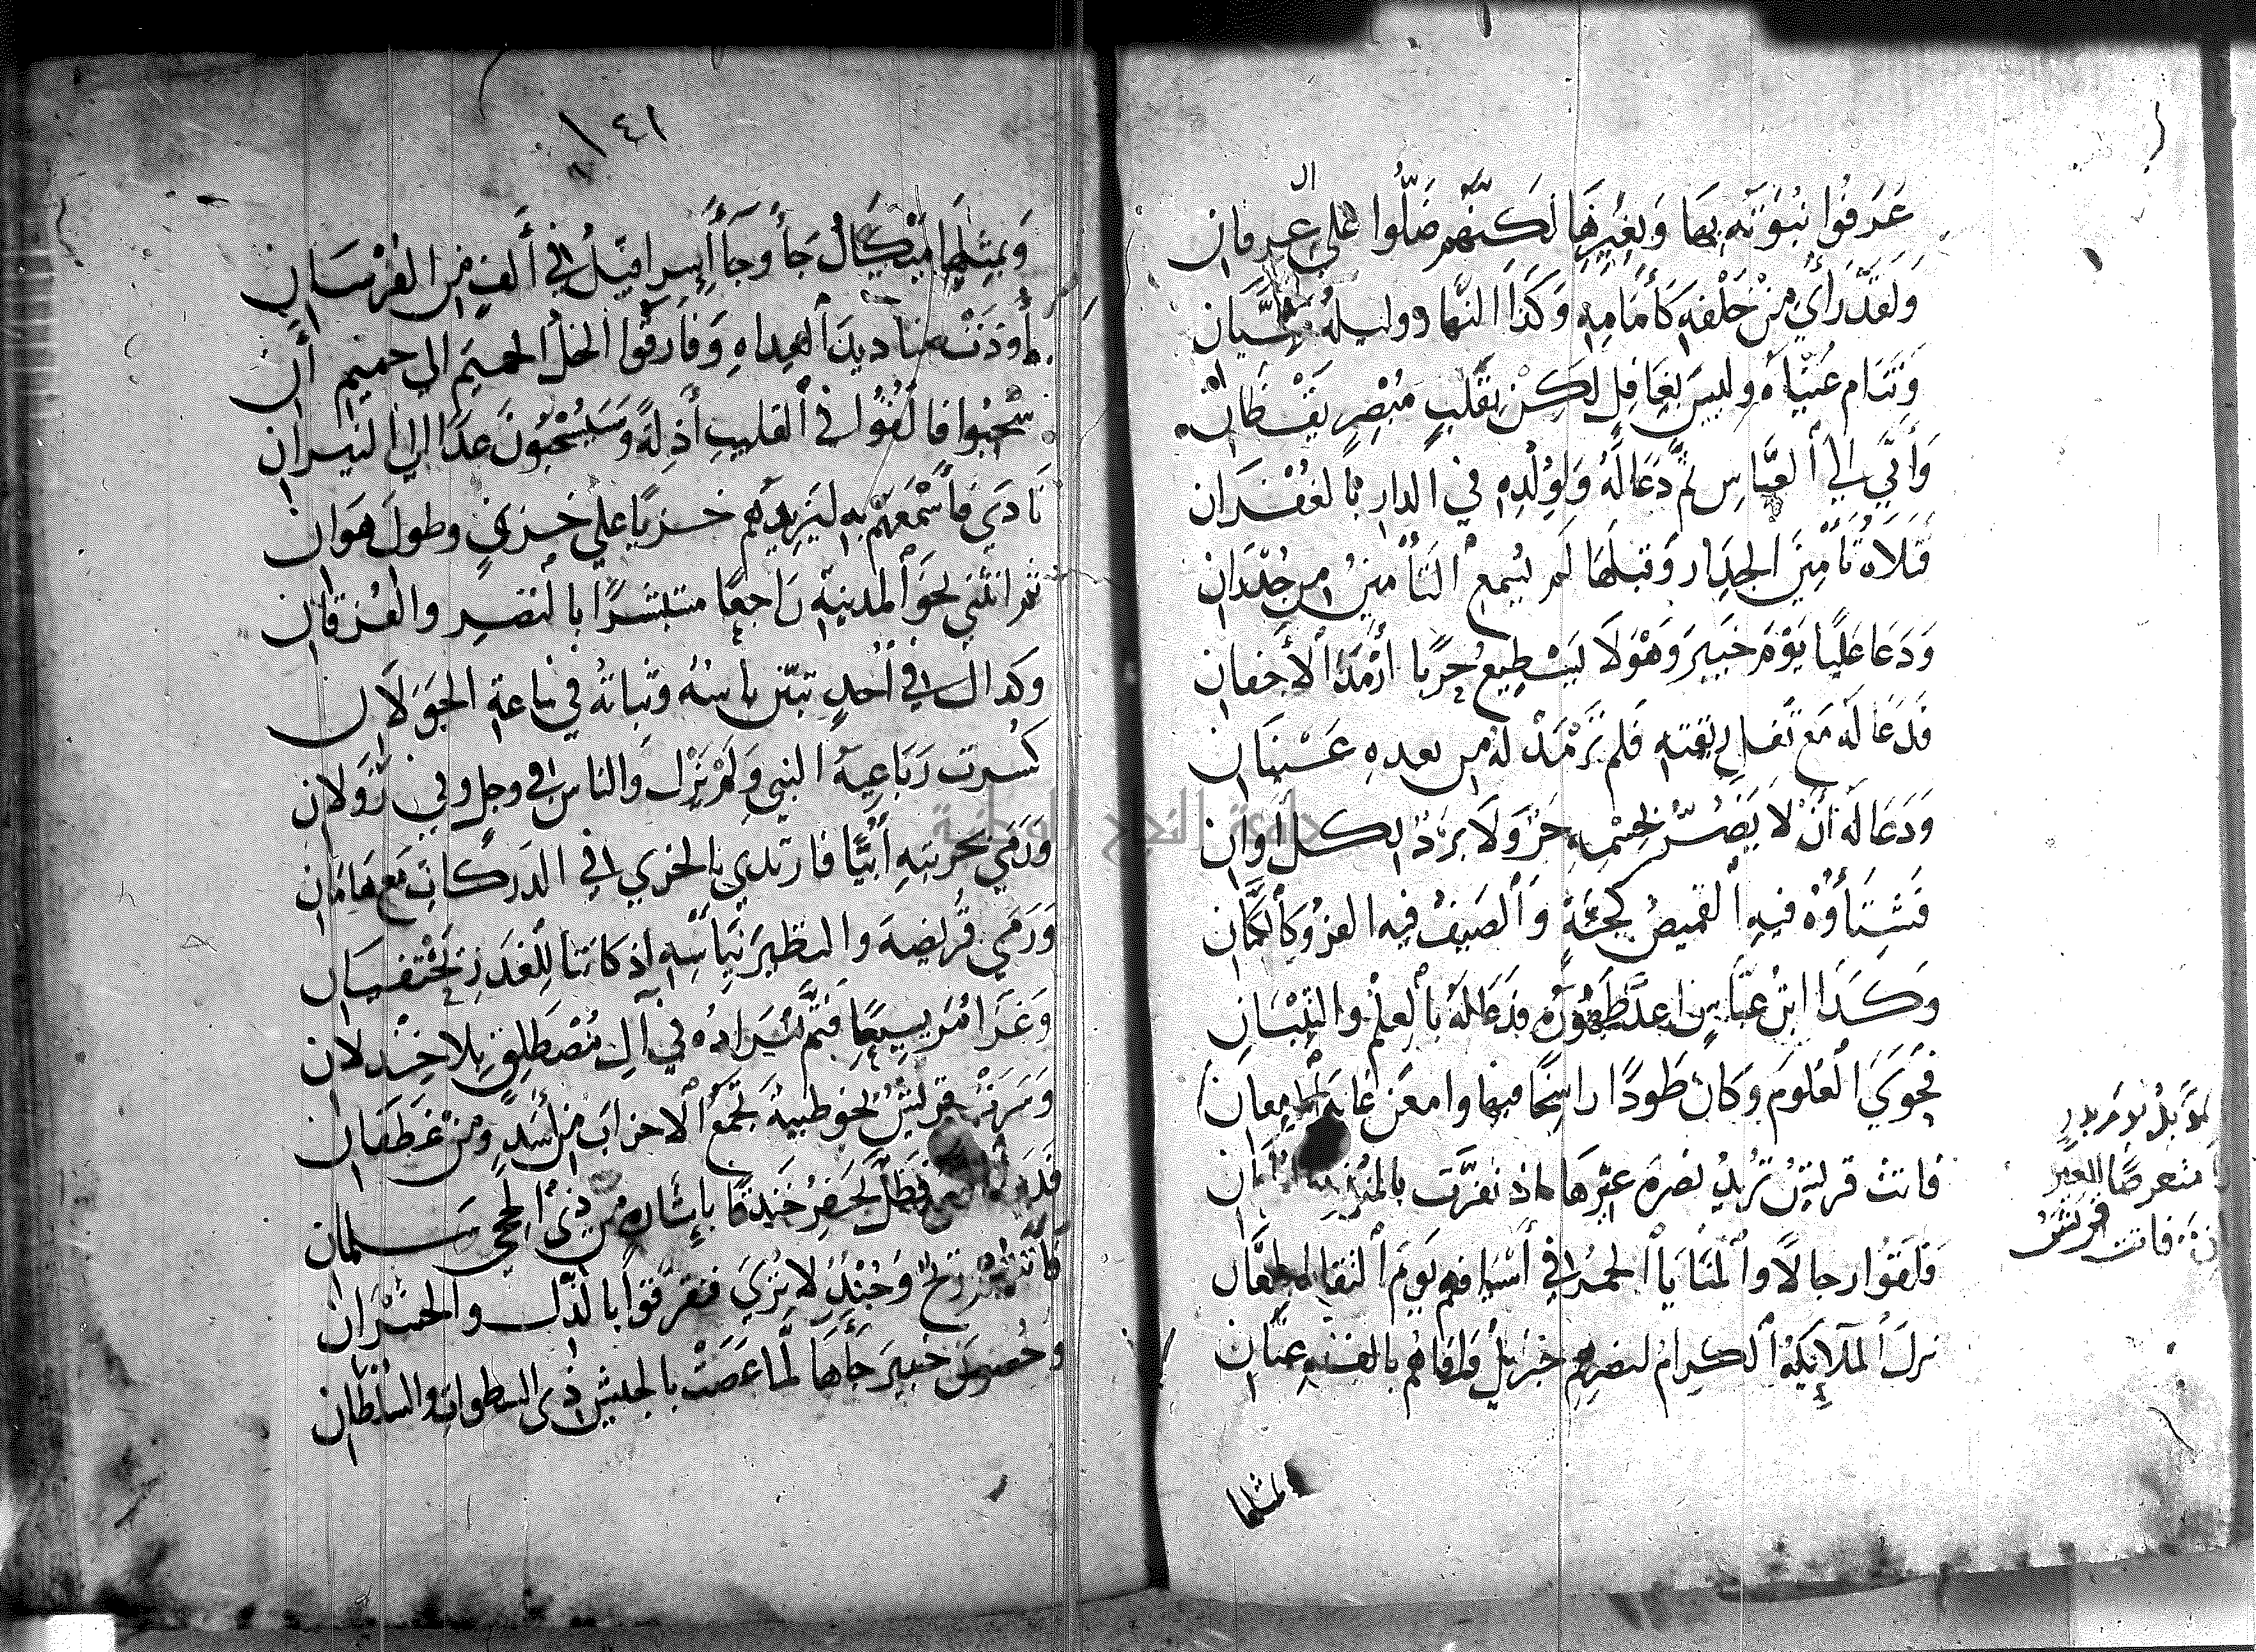 عَرَفُوا نُبُوَّتَهُ بِهَا وَبِغَيْرِهَا لَكِنَّهُم ضَلُّوا عَلَى عِرفان
وَلَقَدْ رَأَى مِنْ خَلْفِهِ كَأَمَامِهِ وَكَذَا النهار وليله سِيَّان
وَتَنَام عَيْنَاهُ وليسَ بِغَافِلٍ لَكِنْ بِقَلْبٍ مُبْصِرٍ يَقْظَان
وَأَتَى إلى العَبَّاسِ ثُمَّ دَعَا لَهُ وَلِوُلْدِهِ في الدارِ بالغُفْرَان
فَتَلَاهُ تَأمِينُ الجِدَار وَقبلَهَا لَم يُسمعِ التَأمِينُ من جُدْرَان
وَدَعَا عَلِيًّا يَوْمَ خَيبَر وَهْوَ لَا يَسْطِيعُ حَرْبًا أَرْمَدَ الأَجفان
فَدَعَا لَهُ مَع تَفلِ رِيقتهِ فَلم تَرْمَدْ لَهُ من بعدهِ عَيْنَان
وَدَعَا لَهُ أَنْ لَا يَضُرَّ لِجِسْمِهِ حَرٌّ وَلَا بَرْدٌ بِكل أَوَان
فَشِتَاؤُهُ فيهِ القميصُ كَجُبَّةٍ وَالصَيفُ فيه الفرْوُ كَالكَتَّان
وَكَذَا ابنُ عَبَّاسٍ أعدَّ طَهُورَهُ فدَعَا لَهُ بِالعِلْمِ والتِّبْيَان
فَحَوَى العُلُومَ وَكانَ طَودًا رَاسِخًا فيها وامعَن غَايَةَ الإمعان
فاتت قريشٌ تُرِيدُ نصرَةَ عيرهَا اذ نفَرَت
فَلَقُوا رجالًا وَالمَنَايَا الحُمرُ في أسيافهم يَومَ التقا
نزلَ المَلَائِكَةُ الكِرَامُ لنصرِهِم جبريلُ
لمثلها
يَومَ بدرٍ
متعرضًا للعير
فاتت قريش
١٤١
وَبمثلِهَا مِيْكَالُ جَاءَ وَجَاءَ إسرافيلُ في أَلفٍ مِن الفُرْسَان
أَودَت صناديدَ العِداهِ وَفَارَقُوا الخلَّ الحميمَ الى حميمٍ آن
سُحِبُوا فَالقُوا في القليبِ أَذِلَةً وَسَيُسْحَبُونَ غدًا إلى النيران
نَادَى فَأَسْمَعَهُمْ بهِ لِيَزِيدَهُم خزيًا على خِزيٍ وطولَ هَوَان
ثم انثنى نحوَ المدينَةِ رَاجِعًا مستبشرًا بالنصرِ والفرقان
وكذاك في أُحدٍ تبيّن بأسُهُ وثباتُهُ في ساعةِ الجَوَلَان
كُسرت رَبَاعِيَةُ النبي وَلَمْ يَزُل والناس في وجلٍ وفي زَوَلان
وَرَمَى بحربتهِ أُبَيًّا فارتدى بالخزي في الدَركاتِ مَع هَامَان
وَرَمَى قُرَيضةَ والنظيرَ ببَأسِهِ اذ كَانَتا لِلْغَدر تختفيان
وَغَزَا مُرَيسِيعًا فَتَمَّ مُرَادُهُ في آلِ مُصْطَلِقٍ بِلا خِذلان
وَسَرَتْ قريشٌ نحوَ طيبةَ تجمعُ الاحزابَ مِن أَسَدٍ ومِن غَطَفَان
فَظَلَّ يَحفرُ خندقًا بإِشَارةٍ من ذي الحجى سَلمان
فَأَتَتْهُمُ ريحٌ وَجُنْدٌ لا تُرَى فتفرَّقوا بالذُّل والخُسْرَان
وَحُصونُ خيبَر جَاءَهَا لَمَّا عَصَتْ بالجيشِ ذي السطواتِ والسُلْطَان
جامعة النجاح الوطنية